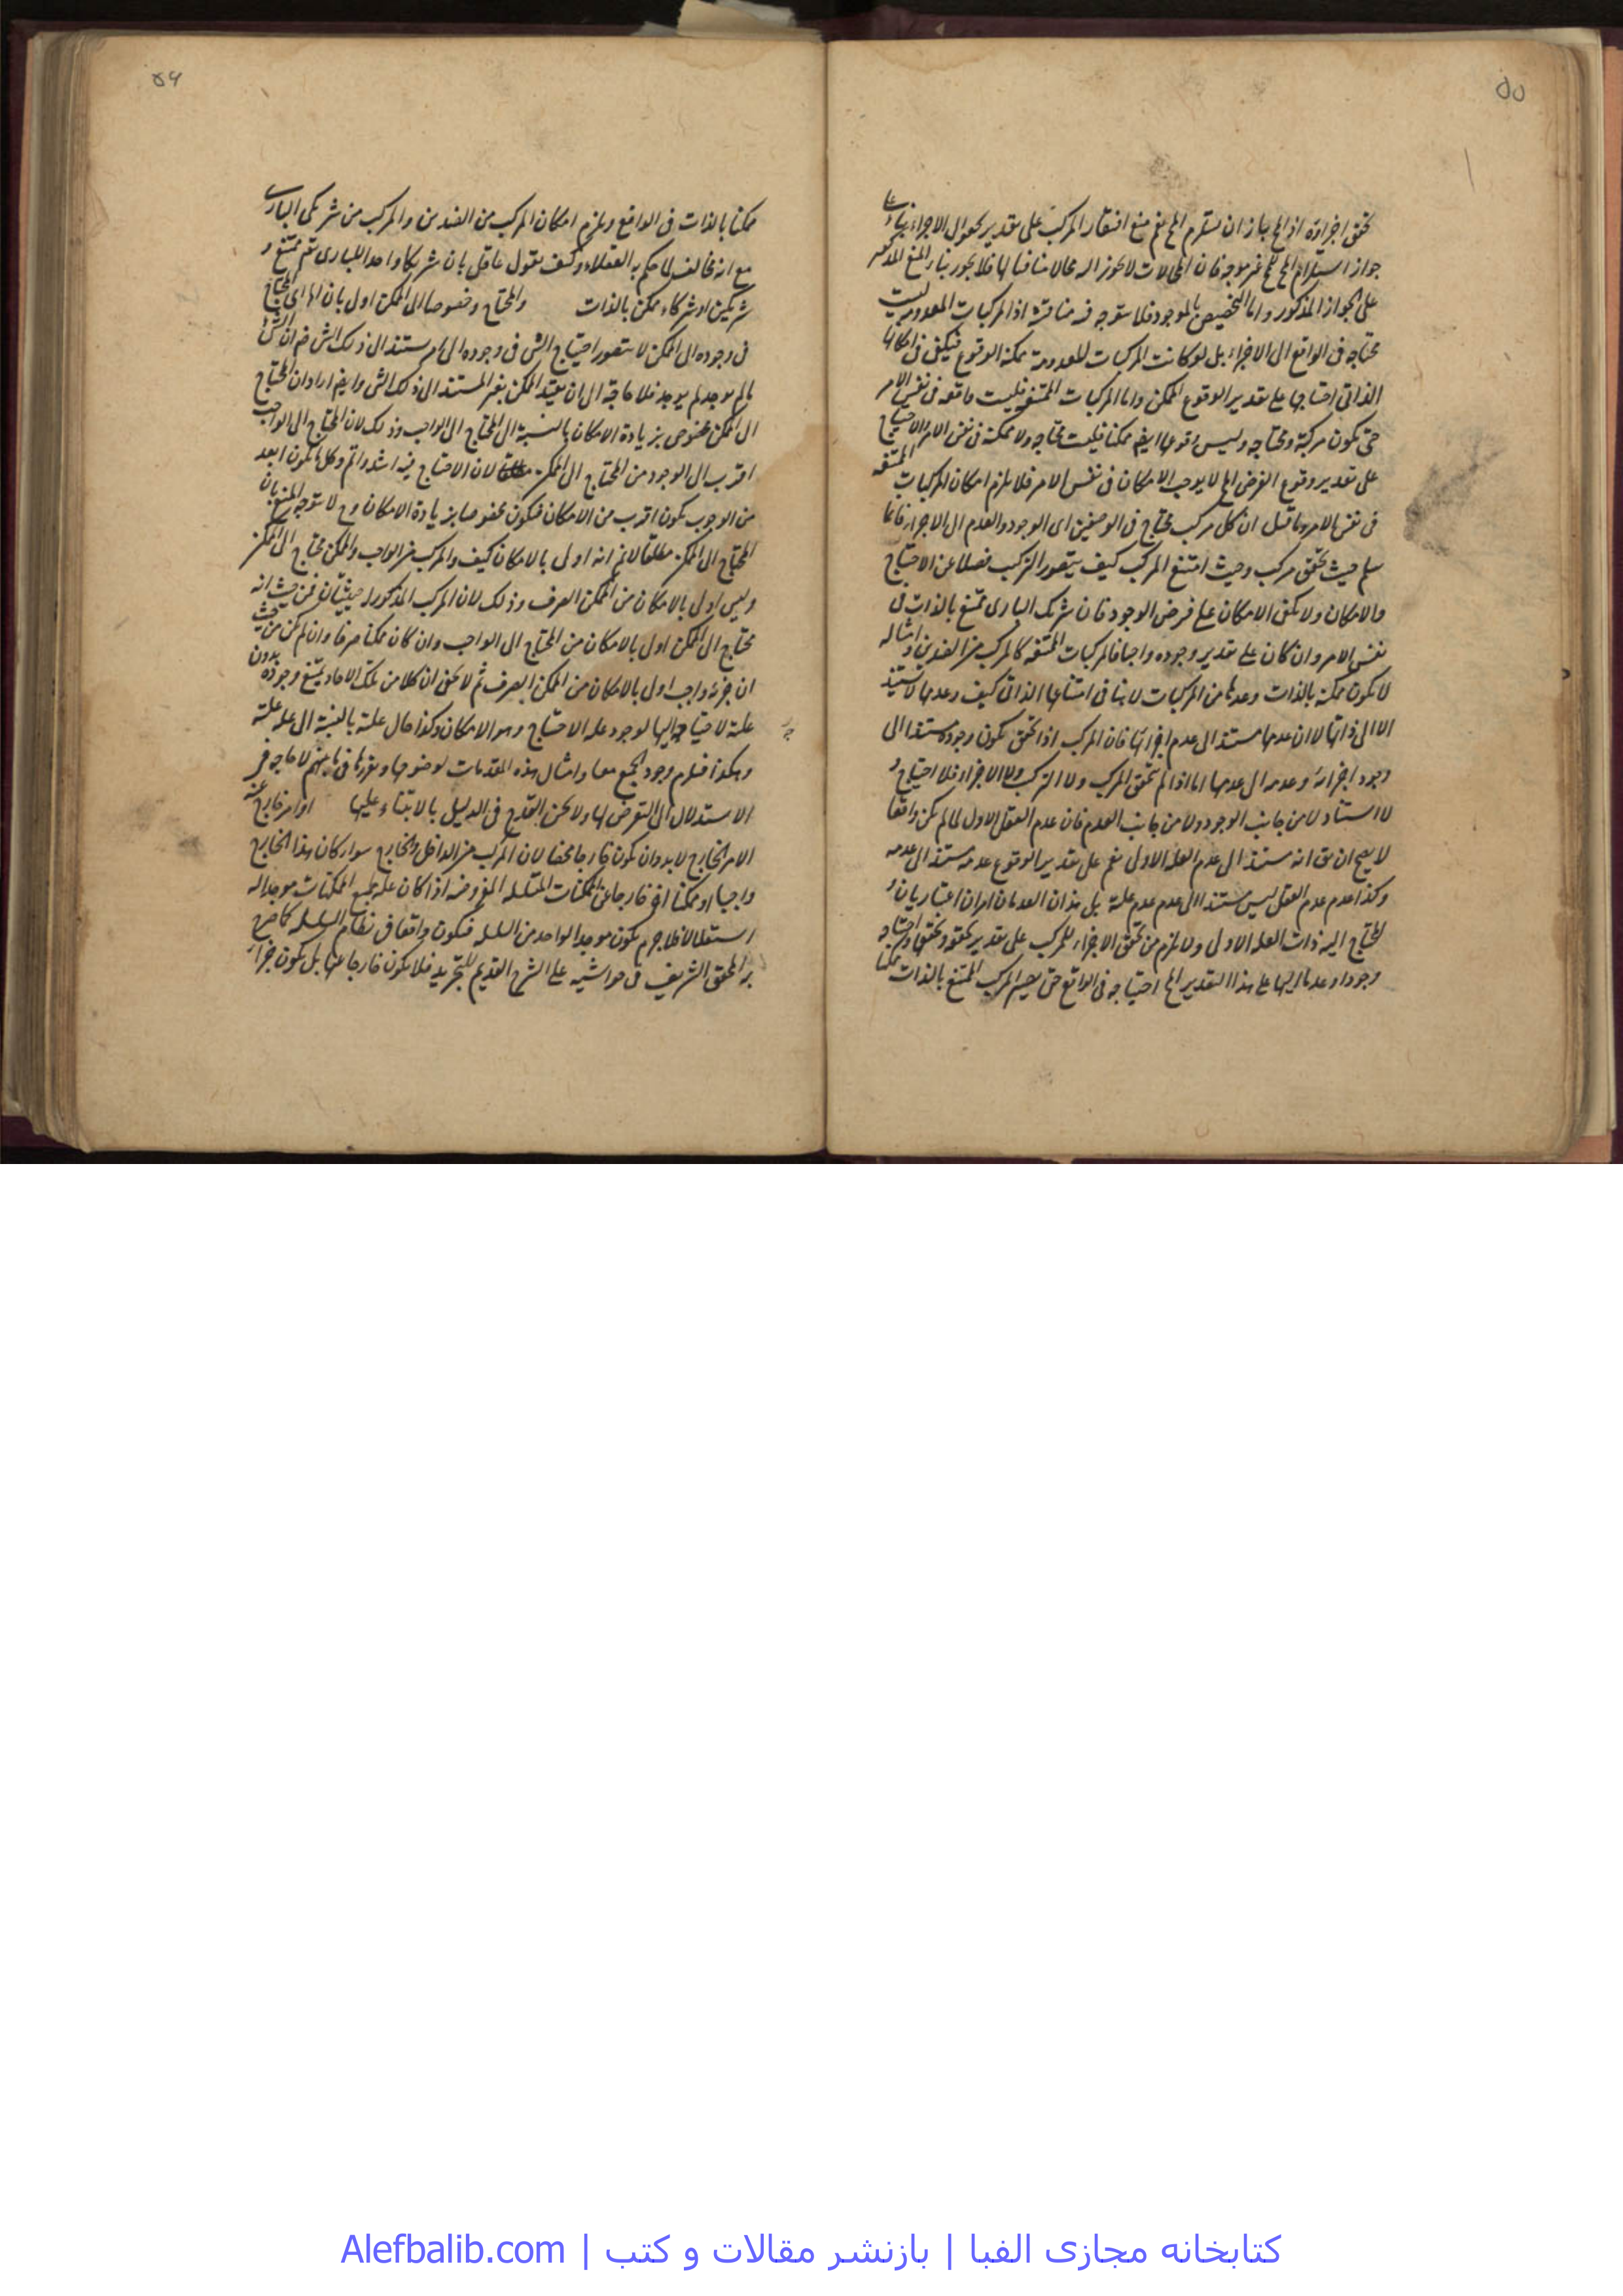 ۵۵
تحقق اجزاءه اذ المح جاز ان يستلزم المح نعم منع افتقار المركب على تقدير حصول الاجزاء بناء على
جواز استلزام المح المح غير موجه فان المحالات لا يجوز
على الجواز المذكور واما التخصيص بالموجود فلا يتوجه فيه مناقشة اذ المركبات المعدومة ليست
محتاجه فى الواقع الى الاجزاء بل لو كانت المركبات المعدومة ممكنة الوقوع فيكفى فى امكانها
الذاتى احتياجها على تقدير الوقوع الممكن واما المركبات الممتنعة فليست واقعه فى نفس الامر
حتى يكون مركبة ومحتاجه وليس وقوعها ايضا ممكنا فليست محتاجه ولا ممكنة فى نفس الامر والاحتياج
على تقدير وقوع الفرض المح لا يوجب الامكان فى نفس الامر فلا يلزم امكان المركبات الممتنعه
فى نفس الامر وما قيل ان كل مركب محتاج فى الوصفين اى الوجود والعدم الى الاجزاء فانما
يسلم حيث تحقق مركب وحيث امتنع المركب كيف يتصور التركب فضلا عن الاحتياج
والامكان ولا يكفى الامكان على فرض الوجود فان شريك البارى ممتنع بالذات فى
نفس الامر وان كان على تقدير وجوده واجبا فالمركبات الممتنعه كالمركب من الضدين وامثاله
لا يكون ممكنة بالذات وعدها من المركبات لا ينافى امتناعها الذاتى كيف وعدمها لا يستند
الا الى ذاتها لا ان عدمها مستند الى عدم اجزائها فان المركب اذا تحقق يكون وجوده مستندا الى
وجود اجزائه وعدمه الى عدمها اما اذا لم يتحقق المركب ولا التركب ولا الاجزاء فلا احتياج و
لا استناد لا من جانب الوجود ولا من جانب العدم فان عدم العقل الاول لما لم يكن واقعا
لا يصح ان يق انه مستند الى عدم العلة الاولى نعم على تقدير الوقوع عدمه مستند الى عدمه
وكذا عدم عدم العقل ليس مستندا الى عدم عدم علته بل هذان العدمان امران اعتباريان و
المحتاج اليه ذات العله الاولى ولا يلزم من تحقق الاجزاء للمركب على تقدير تحققه وتحققها واحتياجه
وجودا وعدما اليها على هذا التقدير المح احتياجه فى الواقع حتى يصير المركب الممتنع بالذات ممكنا
۵۶
ممكنا بالذات فى الواقع ويلزم امكان المركب من الضدين والمركب من شريكى البارى
مع انه مخالف لما حكم به العقلاء وكيف يقول عاقل بان شريكا واحدا للبارى تعم ممتنع و
شريكين او شركاء ممكن بالذات والمحتاج وخصوصا الى الممكن اولى بان
فى وجوده الى الممكن لا يتصور احتياج الشى فى وجوده الى امر مستند الى ذلك الشى
ما لم يوجد لم يوجد فلا حاجة الى ان يقيد الممكن بغير المستند الى ذلك الشى وايضا اراد ان المحتاج
الى الممكن مخصوص بزيادة الامكان بالنسبة الى المحتاج الى الواجب وذلك لان المحتاج الى الواجب
اقرب الى الوجود من المحتاج الى الممكن لان الاحتياج فيه اشد واتم وكل ما يكون ابعد
من الوجوب يكون اقرب من الامكان فيكون مخصوصا بزيادة الامكان وح لا يتوجه المنع بان
المحتاج الى الممكن مطلقا لانم انه اولى بالامكان كيف والمركب من الواجب والممكن محتاج الى الممكن
وليس اولى بالامكان من الممكن الصرف وذلك لان المركب المذكور له حيثيتان فمن حيث انه
محتاج الى الممكن اولى بالامكان من المحتاج الى الواجب وان كان ممكنا صرفا وان لم يكن من حيث
ان جزءه واجب اولى بالامكان من الممكن الصرف ثم لا يخفى ان كلا من تلك الاحاد يمتنع وجوده بدون
علته لاحتياجه اليها لوجود علة الاحتياج وهو الامكان وكذا حال علته بالنسبة الى علة علته
وهكذا فيلزم وجود الجميع معا وامثال هذه المقدمات لوضوحها لا حاجه فى
الاستدلال الى التعرض لها ولا يمكن القدح فى الدليل بالابتناء عليها او امر خارج عنه
الامر الخارج لا بد وان يكون خارجا محضا لان المركب من الداخل والخارج سواء كان هذا الخارج
واجبا او ممكنا اخر خارجا عن الممكنات المتسلسله المفروضه اذا كان علة لجميع الممكنات موجدا له
استقلالا فلا جرم يكون موجدا لواحد من السلسله فيكون واقعا فى نظام السلسله كما صرح
به المحقق الشريف فى حواشيه على الشرح القديم للتجريد فلا يكون خارجا عنها بل يكون جزأ
کتابخانه مجازی الفبا | بازنشر مقالات و کتب | Alefbalib.com